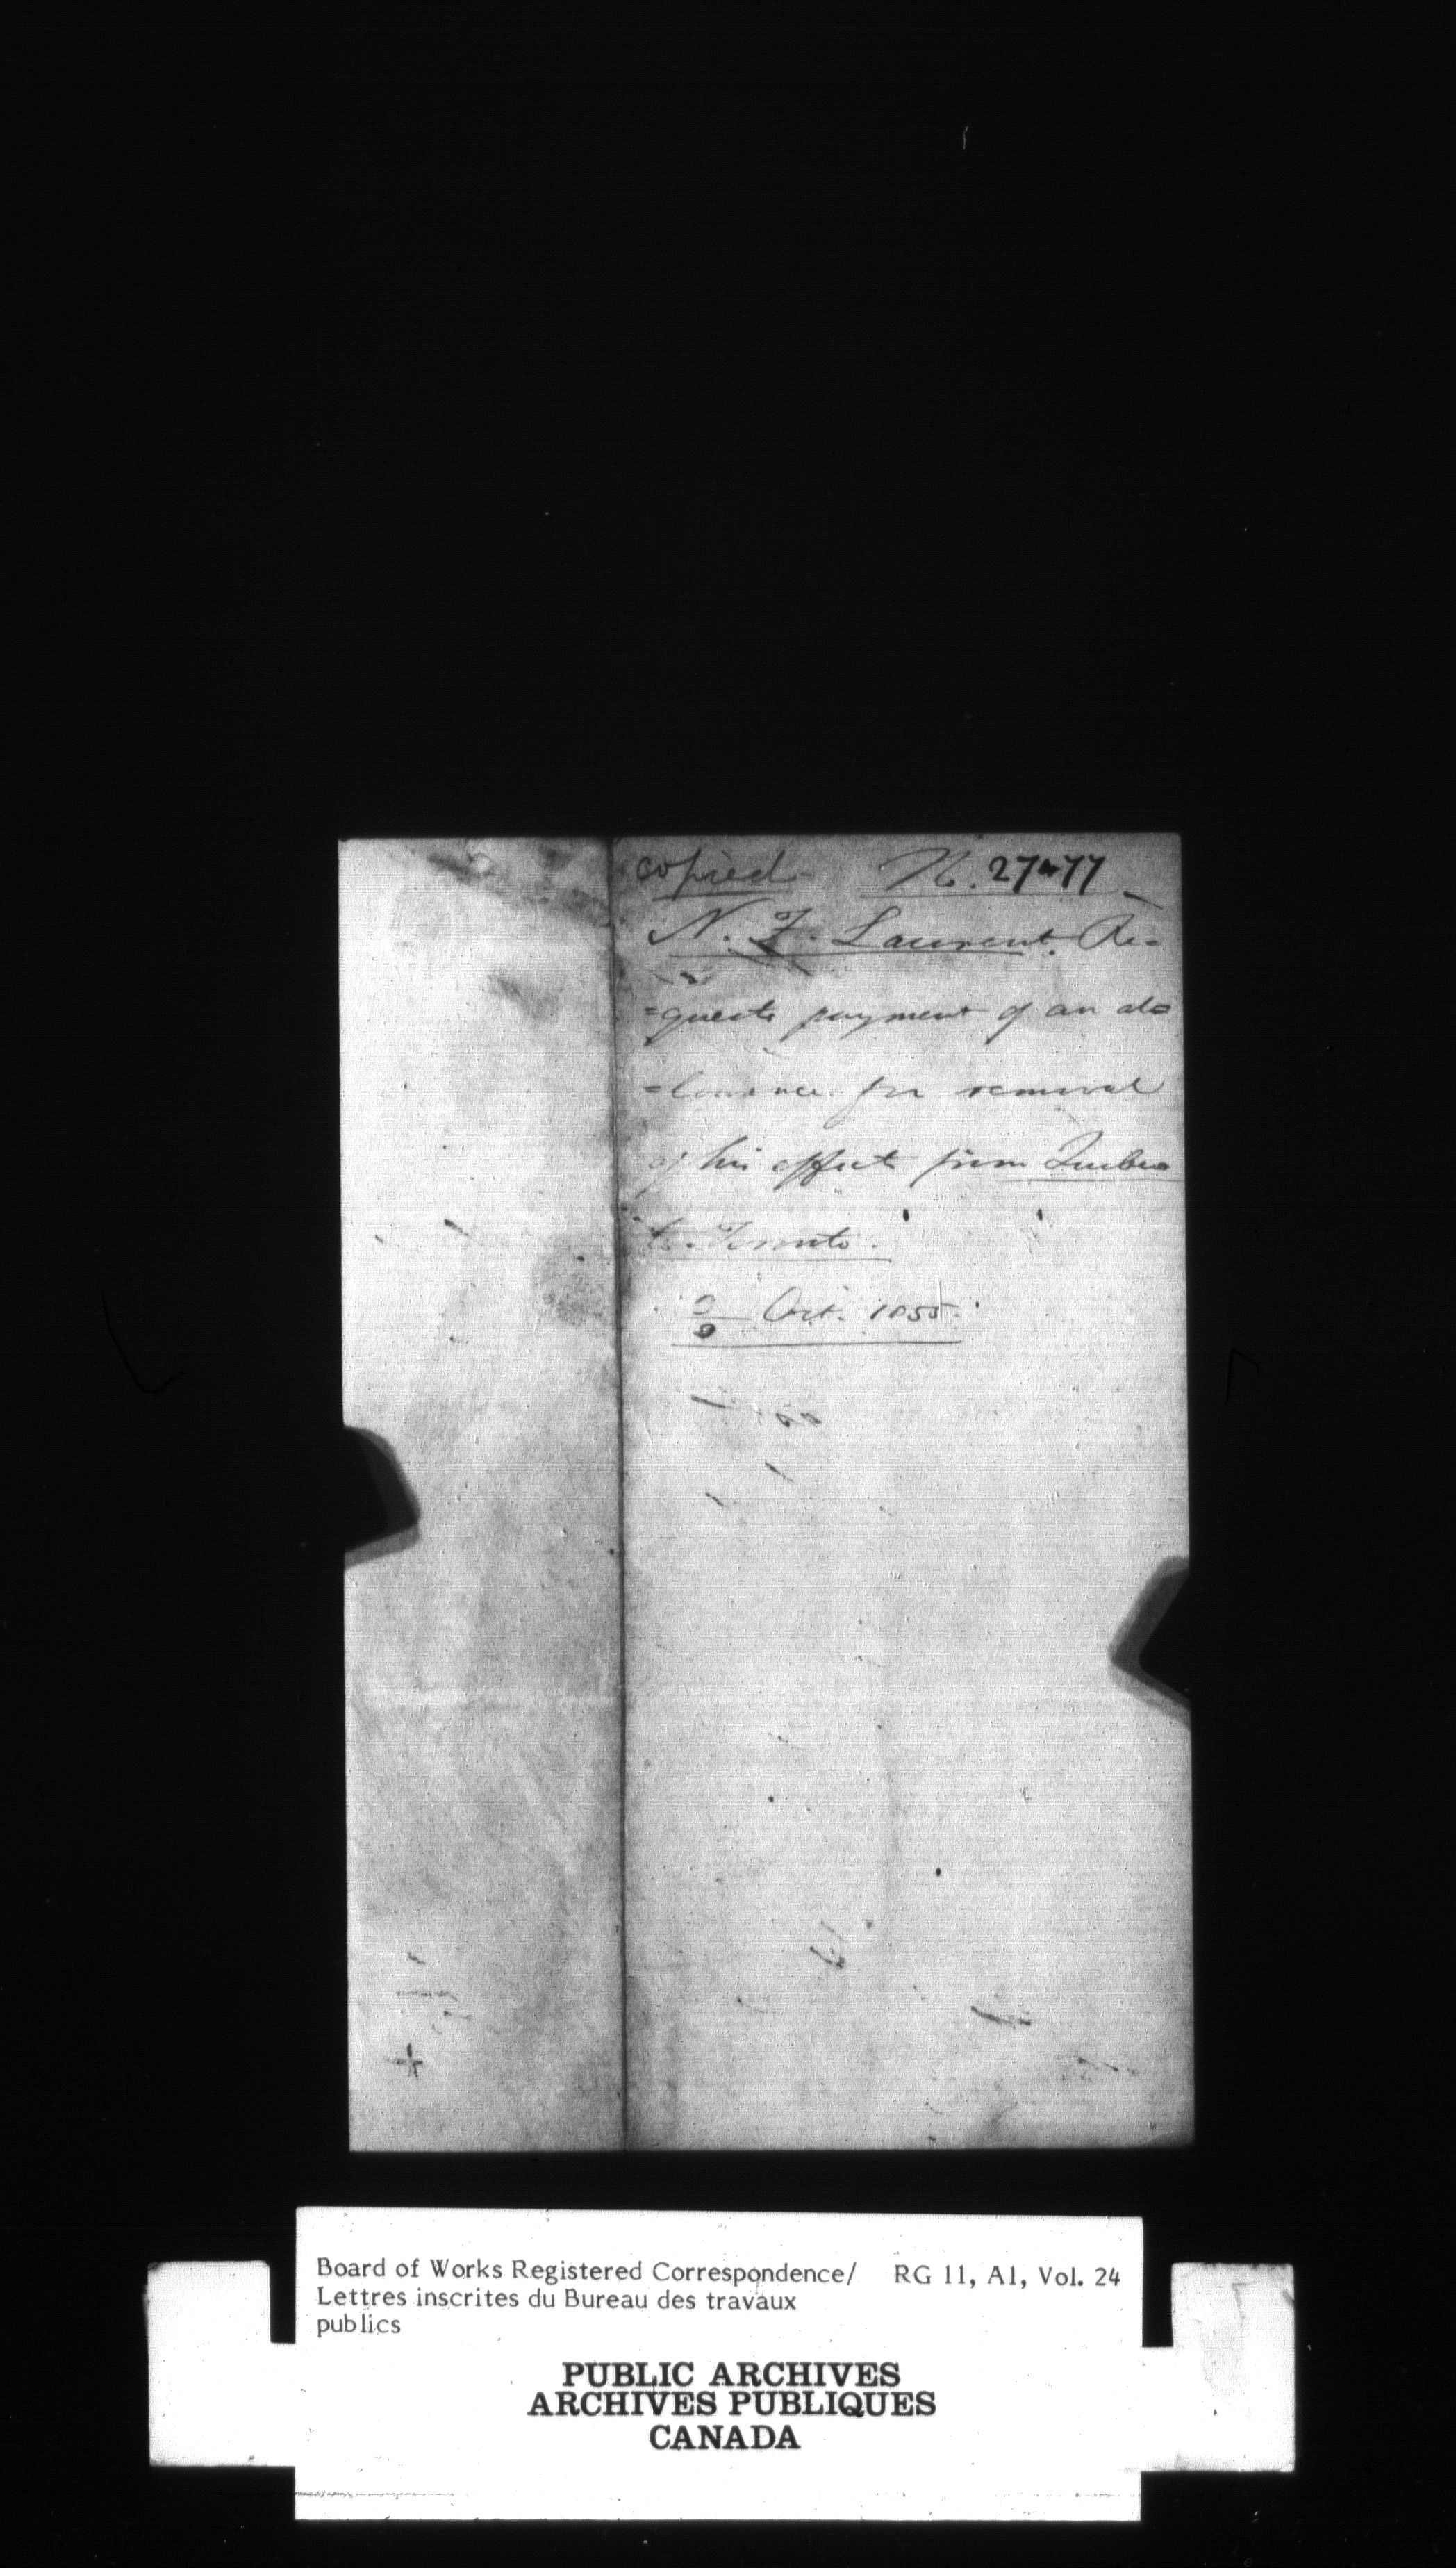 copied N. 27477
N. F. Laurent Re=
=quests payment of an al=
=lowance for removal
of his effects from Quebec
to Toronto.
Oct. 1855.
Board of Works Registered Correspondence/ RG 11, A1, Vol. 24
Lettres inscrites du Bureau des travaux
publics
PUBLIC ARCHIVES
ARCHIVES PUBLIQUES
CANADA